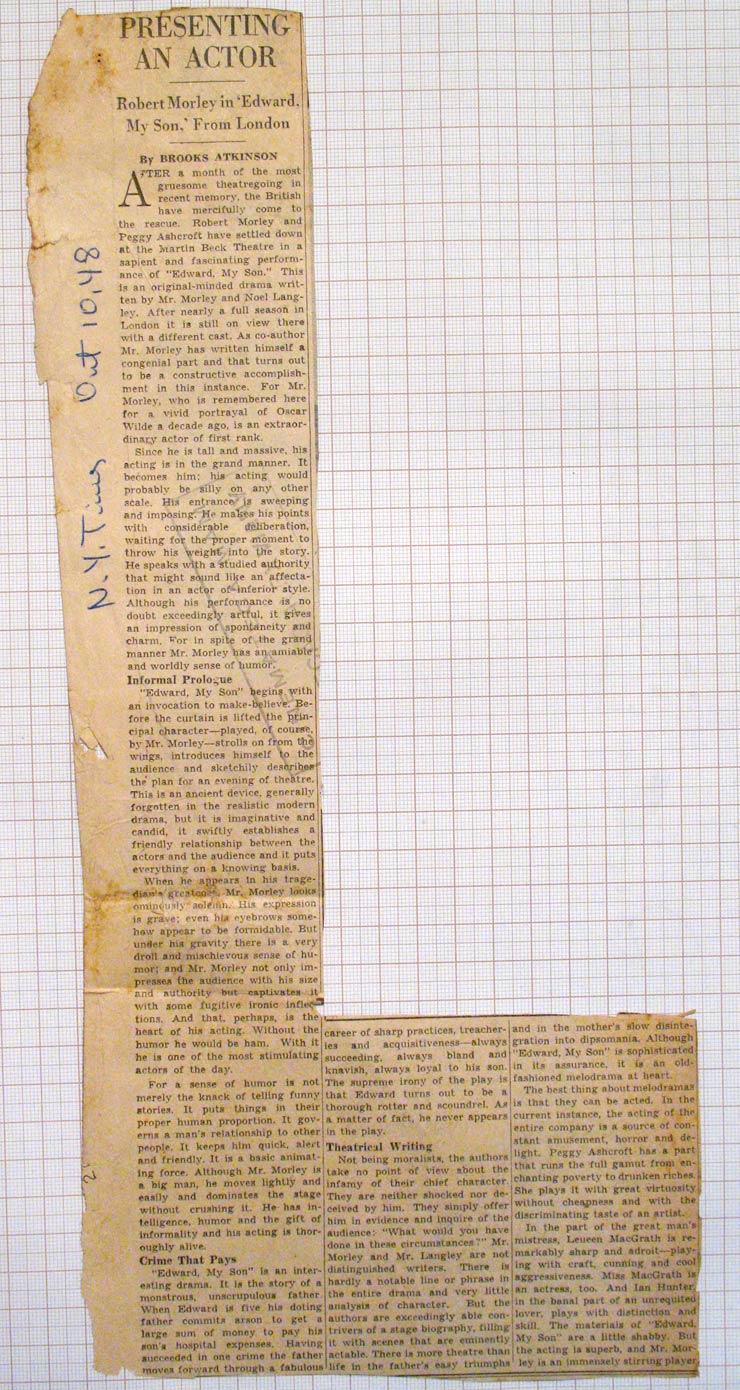 PRESENTING
AN ACTOR
Robert Morley in 'Edward,
My Son,' From London
By BROOKS ATKINSON
AFTER a month of the most
gruesome theatregoing in
recent memory, the British
have mercifully come to
the rescue. Robert Morley and
Peggy Ashcroft have settled down
at the Martin Beck Theatre in a
sapient and fascinating perform-
ance of "Edward, My Son." This
is an original-minded drama writ-
ten by Mr. Morley and Noel Lang-
ley. After nearly a full season in
London it is still on view there
with a different cast. As co-author
Mr. Morley has written himself a
congenial part and that turns out
to be a constructive accomplish-
ment in this instance. For Mr.
Morley, who is remembered here
for a vivid portrayal of Oscar
Wilde a decade ago, is an extraor-
dinary actor of first rank.
Since he is tall and massive, his
acting is in the grand manner. It
becomes him; his acting would
probably be silly on any other
scale. His entrance is sweeping
and imposing. He makes his points
with considerable deliberation,
waiting for the proper moment to
throw his weight into the story.
He speaks with a studied authority
that might sound like an affecta-
tion in an actor of inferior style.
Although his performance is no
doubt exceedingly artful, it gives
an impression of spontaneity and
charm. For in spite of the grand
manner Mr. Morley has an amiable
and worldly sense of humor.
Informal Prologue
"Edward, My Son" begins with
an invocation to make-believe. Be-
fore the curtain is lifted the prin-
cipal character—played, of course,
by Mr. Morley—strolls on from the
wings, introduces himself to the
audience and sketchily describes
the plan for an evening of theatre.
This is an ancient device, generally
forgotten in the realistic modern
drama, but it is imaginative and
candid, it swiftly establishes a
friendly relationship between the
actors and the audience and it puts
everything on a knowing basis.
When he appears in his trage-
dian's greatcoat, Mr. Morley looks
ominously solemn. His expression
is grave; even his eyebrows some-
how appear to be formidable. But
under his gravity there is a very
droll and mischievous sense of hu-
mor; and Mr. Morley not only im-
presses the audience with his size
and authority but captivates it
with some fugitive ironic inflec-
tions. And that, perhaps, is the
heart of his acting. Without the
humor he would be ham. With it
he is one of the most stimulating
actors of the day.
For a sense of humor is not
merely the knack of telling funny
stories. It puts things in their
proper human proportion. It gov-
erns a man's relationship to other
people. It keeps him quick, alert
and friendly. It is a basic animat-
ing force. Although Mr. Morley is
a big man, he moves lightly and
easily and dominates the stage
without crushing it. He has in-
telligence, humor and the gift of
informality and his acting is thor-
oughly alive.
Crime That Pays
"Edward, My Son" is an inter-
esting drama. It is the story of a
monstrous, unscrupulous father.
When Edward is five his doting
father commits arson to get a
large sum of money to pay his
son's hospital expenses. Having
succeeded in one crime the father
moves forward through a fabulous
career of sharp practices, treacher-
ies and acquisitiveness—always
succeeding, always bland and
knavish, always loyal to his son.
The supreme irony of the play is
that Edward turns out to be a
thorough rotter and scoundrel. As
a matter of fact, he never appears
in the play.
Theatrical Writing
Not being moralists, the authors
take no point of view about the
infamy of their chief character.
They are neither shocked nor de-
ceived by him. They simply offer
him in evidence and inquire of the
audience: "What would you have
done in these circumstances?" Mr.
Morley and Mr. Langley are not
distinguished writers. There is
hardly a notable line or phrase in
the entire drama and very little
analysis of character. But the
authors are exceedingly able con-
trivers of a stage biography, filling
it with scenes that are eminently
actable. There is more theatre than
life in the father's easy triumphs
and in the mother's slow disinte-
gration into dipsomania. Although
"Edward, My Son" is sophisticated
in its assurance, it is an old-
fashioned melodrama at heart.
The best thing about melodramas
is that they can be acted. In the
current instance, the acting of the
entire company is a source of con-
stant amusement, horror and de-
light. Peggy Ashcroft has a part
that runs the full gamut from en-
chanting poverty to drunken riches.
She plays it with great virtuosity
without cheapness and with the
discriminating taste of an artist.
In the part of the great man's
mistress, Leueen MacGrath is re-
markably sharp and adroit—play-
ing with craft, cunning and cool
aggressiveness. Miss MacGrath is
an actress, too. And Ian Hunter,
in the banal part of an unrequited
lover, plays with distinction and
skill. The materials of "Edward,
My Son" are a little shabby. But
the acting is superb, and Mr. Mor-
ley is an immensely stirring player
N.Y. Times Oct 10, 48